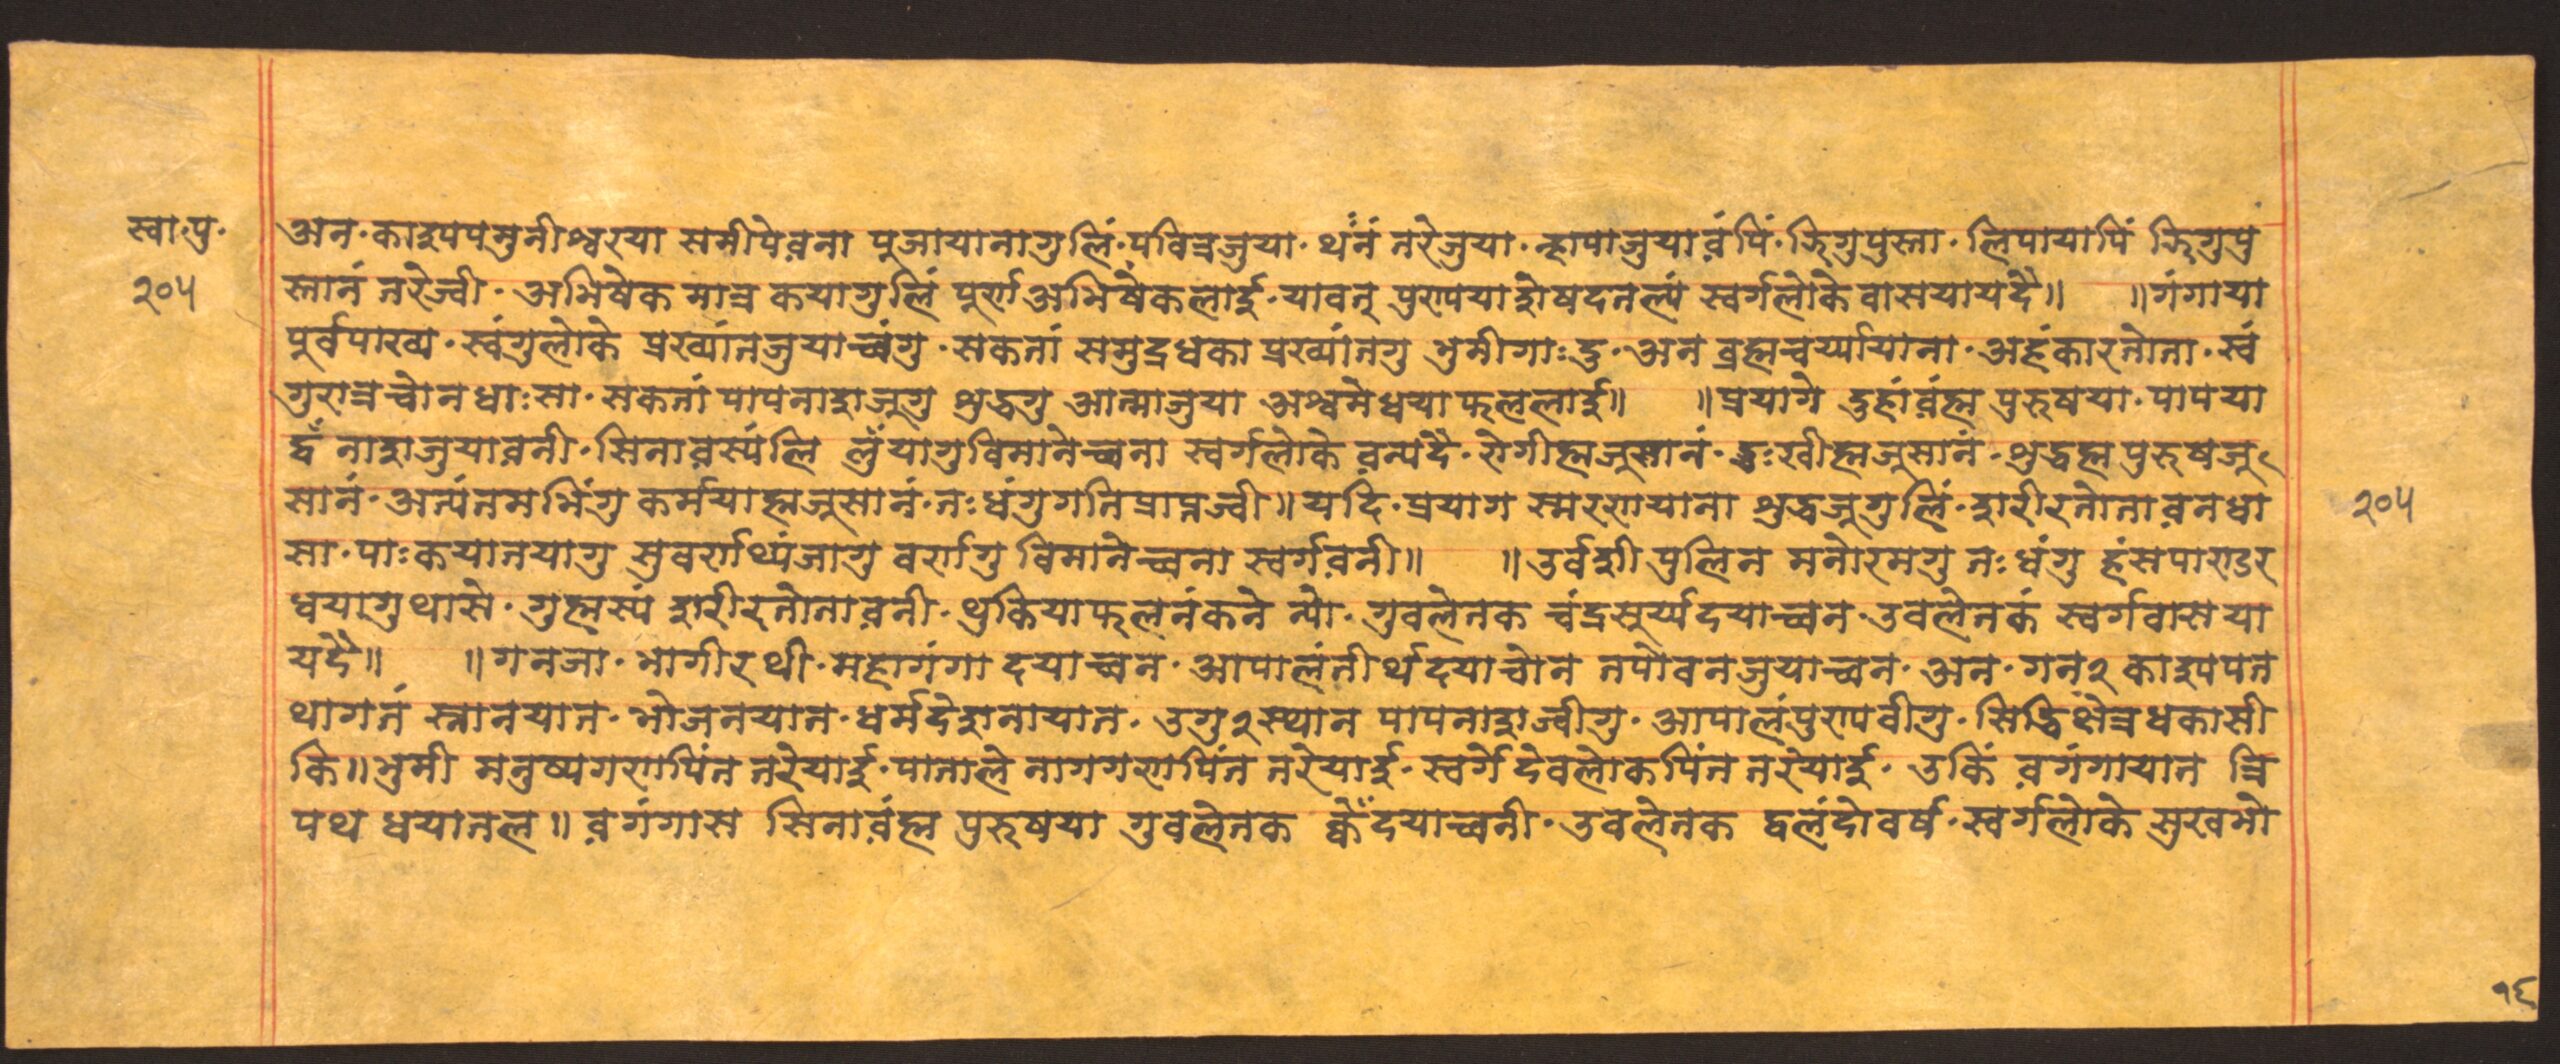 स्वा.पु.
२०५
अन.काश्यपमुनीश्वरया समीपेव़ना पूजायानागुलिं.पवित्रजुया.थंनं तरेजुया.न्हापाजुयाव़ंपिं.झिगुपुस्ता.लिपायापिं झिगुपु
स्तानं तरेज्वी.अभिषेक मात्र कयागुलिं पूर्णाअभिषेकलाई.यावत् पुण्यया शेषदतल्यं स्वर्गलोके वासयायदै॥ ॥गंगाया
पुर्वपाख्य.स्वंगुलोके प्रख्यांतजुयाच्वंगु.सकतां समुद्रधका प्रख्यांतगु भुमीगाः दु.अन ब्रह्मचर्य्यायाना.अहंकारतोता.स्वं
गुरात्रच्वोनधाःसा.सकतां पापनाशजूगु शुद्धगु आत्माजुया अश्वमेधया फललाई॥ ॥प्रयागे दुहांव़ंह्म पुरुषया.पापया
द्वँ नाशजुयाव़नी.सिनाव़स्यंलि लुँयागुविमानेच्वना स्वर्गलोके व़न्यदै.रोगीह्मजूसानं.दुःखीह्मजूसानं.शुद्धह्म पुरुषजू
सानं.अत्यंतमभिंगु कर्मयाह्मजूसानं.तःधंगुगतिप्राप्तज्वी॥यदि.प्रयाग स्मरणयाना शुद्धजूगुलिं.शरीरतोताव़नधा
सा.पाःकयातयागु सुवर्णथ्यंजागु वर्णगु विमानेच्वना स्वर्गव़नी॥ ॥उर्वशी पुलिन मनोरमगु तःधंगु हंसपाण्डर
धयागुथासे.गुह्मस्यं शरीरतोताव़नी.थुकियाफलनंकने न्यो.गुवलेतक चंद्रसूर्य्यदयाच्वन.उवलेतकं स्वर्गवासया
यदै॥ ॥गनजा.भागीरथी.महागंगा दयाच्वन.आपालंतीर्थदयाचोन तपोवनजुयाच्वन.अन.गन२ काश्यपत
थागतं स्नानयात.भोजनयात.धर्मदेशनायात.उगु२स्थान पापनाशज्वीगु.आपालंपुण्यवीगु.सिद्धिक्षेत्रधकासी
कि॥भुमी मनुष्यगणपिंत तरेयाई.पाताले नागगणपिंत तरेयाई.स्वर्गे देवलोकपिंत तरेयाई.उकिं व़गंगायात त्रि
पथ धयातल॥व़गंगास सिनाव़ंह्म पुरुषया गुवलेतक क्वेँदयाच्वनी.उवलेतक द्वलंदोवर्ष.स्वर्गलोके सुखभो
२०५
१६